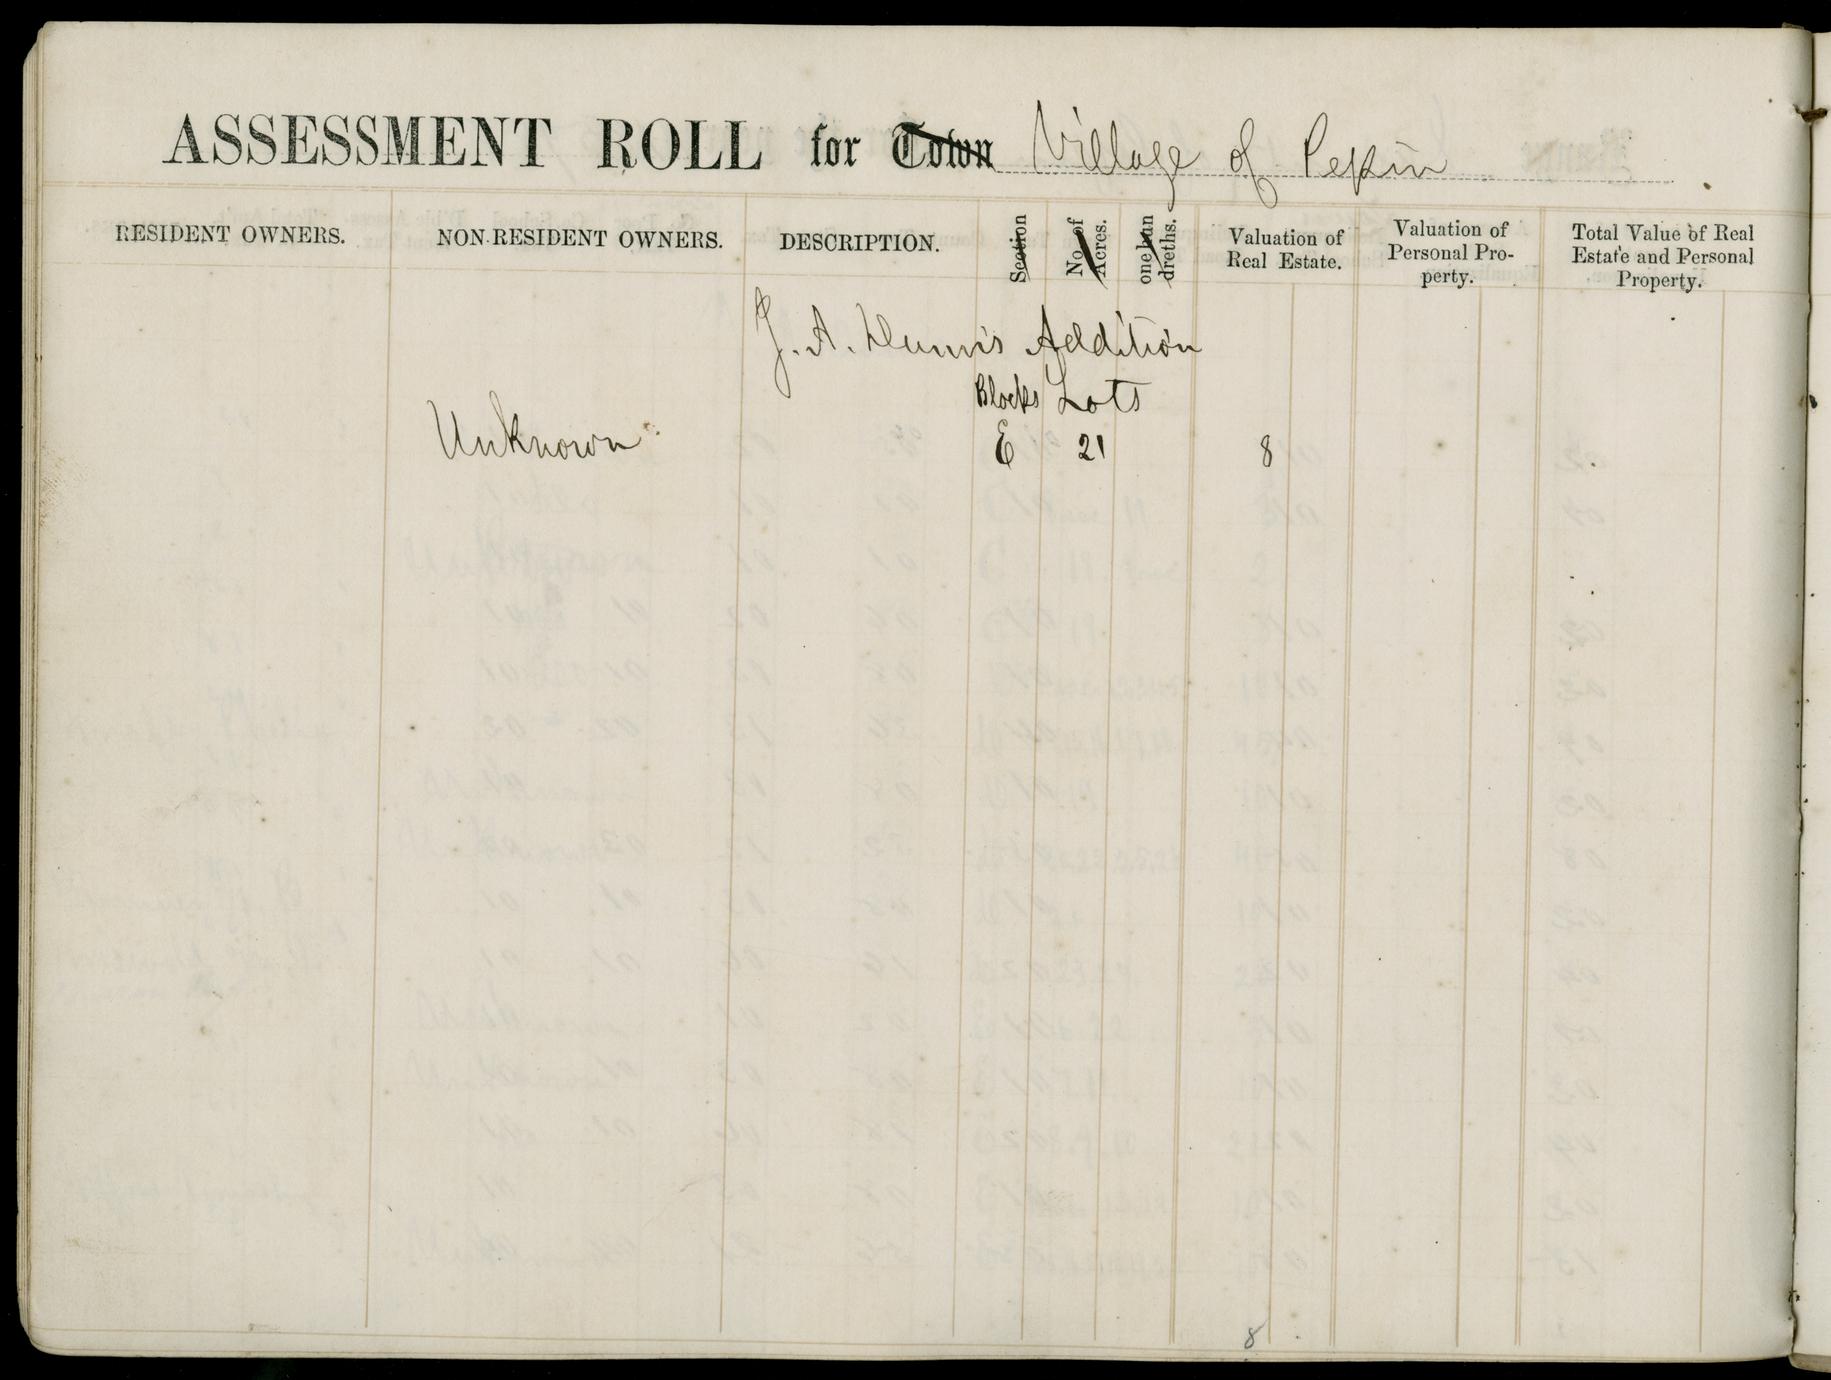 ASSESSMENT ROLL for Town Village of Pepin
RESIDENT OWNERS. NON-RESIDENT OWNERS. DESCRIPTION. Section No. of Acres. one hun dreths. Valuation of Real Estate. Valuation of Personal Pro- perty. Total Value of Real Estate and Personal Property.
J. A. Dunn's Addition
Blocks Lots
Unknown E 21 8
8